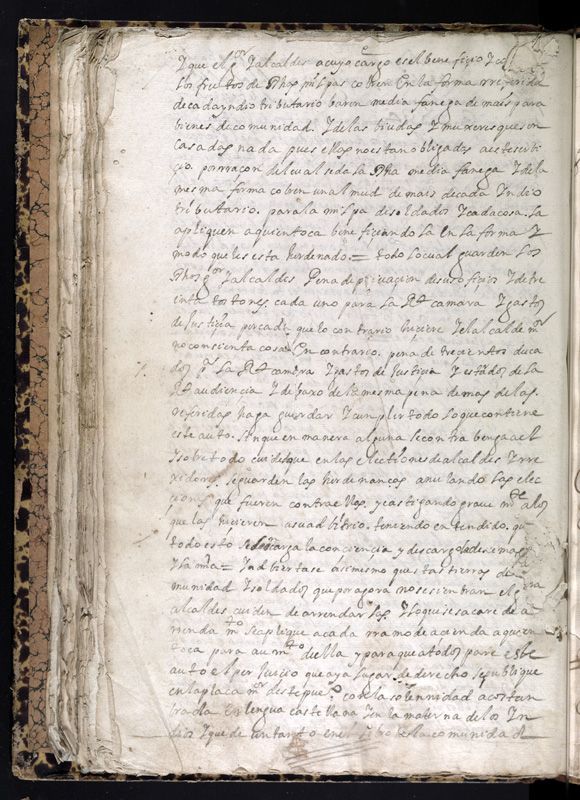 Y que el g.or Y alcaldes a cuyo cargo es el bene ficio Y co
los frutos de dhas milpas cobren En la forma rreferida
de cada yndio tributario baron media fanega de mais para
bienes de comunidad. Y de las biudas Y muxeres que son
casadas nada pues ellas no estan obligadas a este serbi
cio. por rraçon del cual se da la dha media fanega Y de la
mesma forma cobren un almud de mais de cada Yndio
tributario. para la milpa de soldados Y cada cosa. la
apliquen a quien toca bene ficiando la En la forma Y
modo que les esta hordenado = todo lo cual guarden los
dhos g.or Y alcaldes Pena de pribacion de sus oficios Y de tre
inta tostones cada uno para la Rl camara Y gastos
de Justicia por cada que lo contrario hiciere Y el alcalde m.or
no consienta cosa En contrario. pena de trecientos duca
dos p.a La Rl camara Y gastos de Justicia Y estrados de la
Rl audiencia Y debaxo de la mesma pena demas de las.
rreferidas haga guardar Y cunplir todo lo que contiene
este auto. sin que en manera alguna se contra benga a el
Y sobre todo cuide que en las electiones de alcaldes Y rre
xidores se guarden las hordenanças anulando las elec
ciones que fueren contra ellas, y castigando grave m.te a los
que las hicieren a su adbitrio. teniendo entendido. qu
todo esto se encarga la conciencia y descarga la de su mag.
Y la mia = Y adbiertase asi mesmo que estas tierras de
munidad Y soldados que por agora no se sienbran el g
alcaldes cuiden de arrendar las Y lo que se sacare de a
rrienda m.to se aplique a cada rramo de acienda a quien
toca para au m.to de ella y para que a todos pare este
auto el per Juicio que aya lugar de derecho se publique
en la plaça m.or deste pue.o con la solennidad acostun
brada En lengua castellana Y en la materna de los Yn
dios Y que de un tanto en el libro de la comunidad d